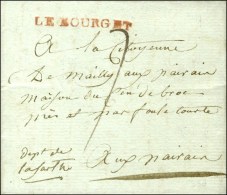 LE BOURGET
7
A la Citoyenne
De Mailly aux pairain
maison du Cen de broc
près et par foulle tourte
dept de
la sarthe
Aux pairain